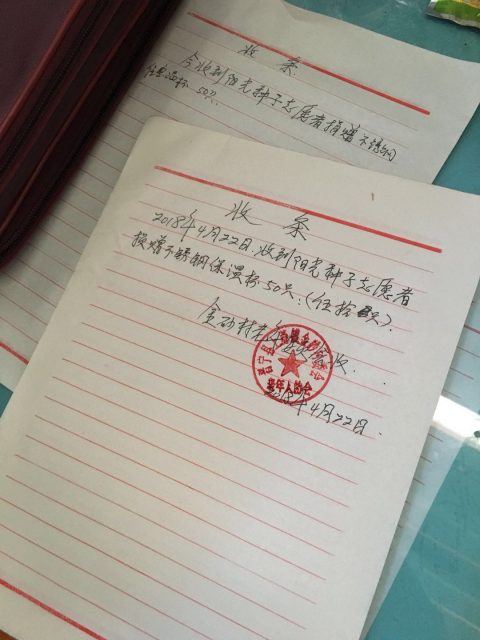 收条
今收到阳光种子志愿者捐赠不锈钢
保温杯50只
收条
2018年4月22日.收到阳光种子志愿者
捐赠不锈钢保温杯50只.(伍拾只).
金砂村老年
收.
老年人协会
2018年4月22日.